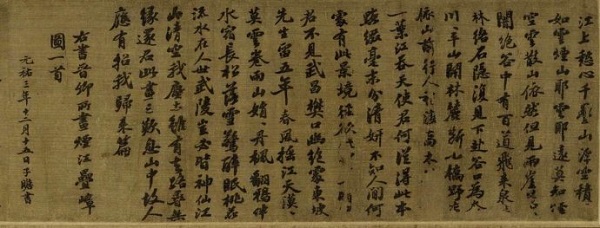 江上愁心千疊山浮空積
如雲煙山耶雲耶遠莫知煙
空雲散山依然但見兩崖蒼〻
闇絕谷中有百道飛來泉
林絡石隱復見下赴谷口為
川平山開林麓斷小橋野店
依山前行人稍度喬木
一葉江吞天使君何從得此本
點綴毫末分清妍不知人間何
處有此境徑欲
君不見武昌樊口幽絕處東坡
先生留五年春風搖江天漠〻
莫雲卷雨山娟〻丹楓翻鴉伴
水宿長松落雪驚醉眠桃花
流水在人世武陵豈必皆神仙江
山清空我塵土雖有去路尋無
緣還君此畫三歎息山中故人
應有招我歸來篇
右書晉卿所畫煙江疊嶂
圖一首
元祐三年十二月十五日子瞻書